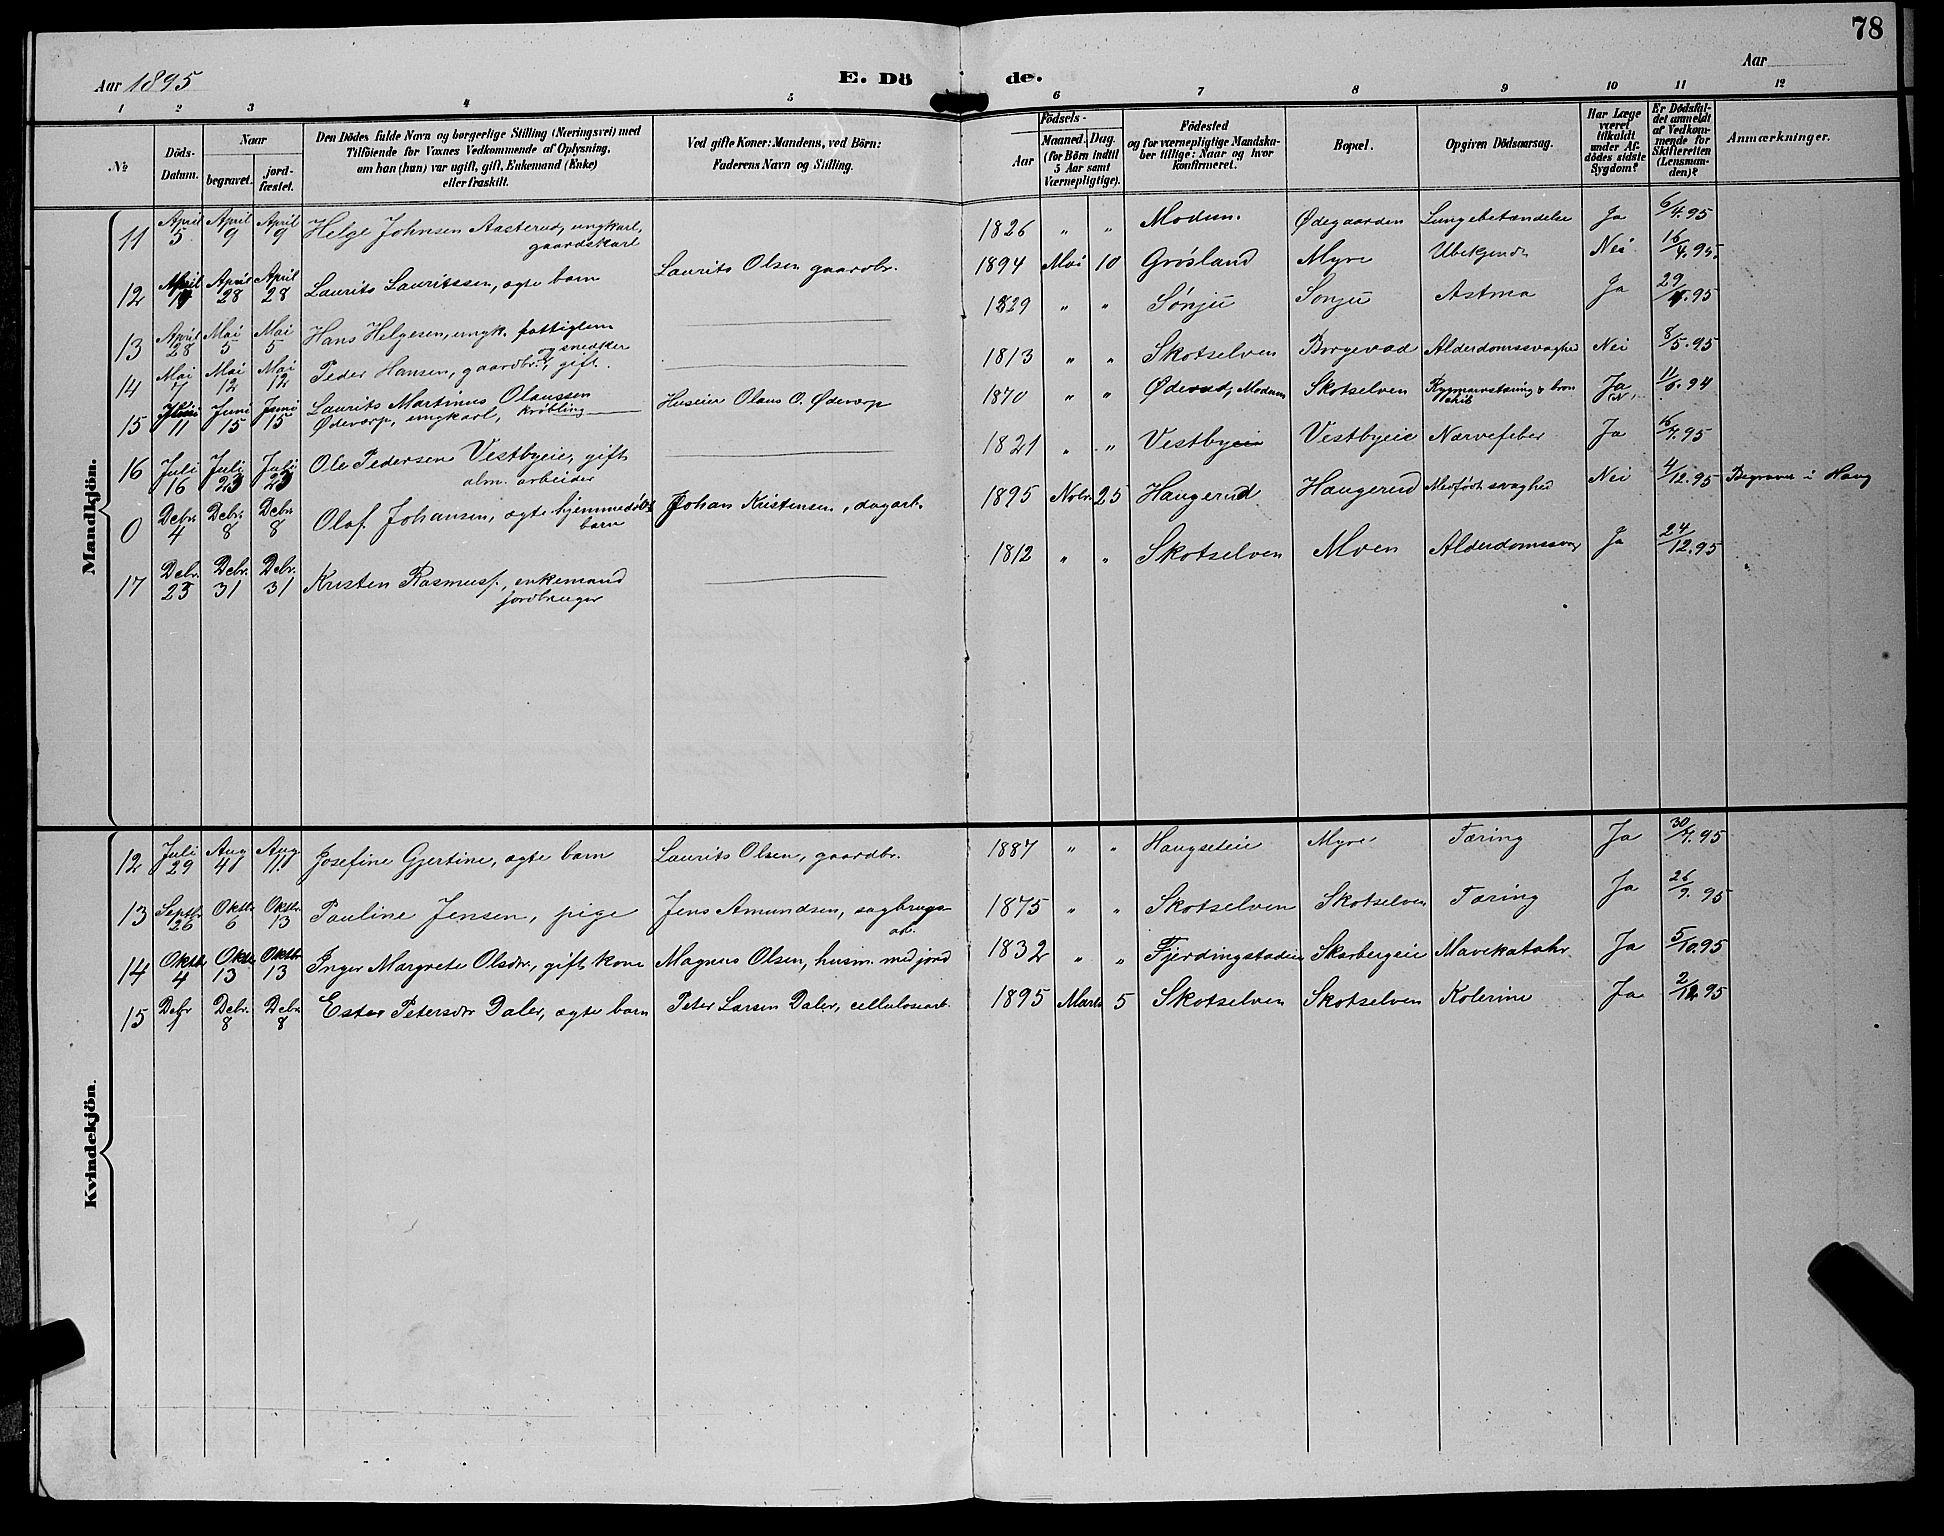 78
Aar 1895 E. Dö de. Aar
1 2 3 4 5 6 7 8 9 10 11 12
№
Döds-
Datum.
Naar
begravet.
jord-
fæstet.
Den Dödes fulde Navn og borgerlige Stilling (Næringsvei) med
Tilföiende for Voxnes Vedkommende af Oplysning,
om han (hun) var ugift, gift, Enkemand (Enke)
eller fraskilt.
Ved gifte Koner: Mandens, ved Börn:
Faderens Navn og Stilling.
Födsels-
Aar
Maaned. Dag.
(for Börn indtil
5 Aar samt
Værnepligtige).
Födested
og for værnepligtige Mandska-
ber tillige: Naar og hvor
konfirmeret.
Bopæl.
Opgiven Dödsaarsag.
Har Læge
været
tilkaldt
under Af-
dödes sidste
Sygdom?
Er Dödsfal-
det anmeldt
af Vedkom-
mende for
Skifteretten
(Lensman-
den)?
Anmærkninger.
Mandkjön.
11 April 5 April 9 April 9 Helge Johnsen Aasterud, ungkarl, gaardskarl 1826 " " Modum. Ødegaarden Lungebetændelse Ja 6/4.95
12 April 28 April 28 Laurits Lauritssen, ægte barn Laurits Olsen gaardbr. 1894 Mai 10 Grøsland Myre Ubekjendt Nei 16/4.95.
13 April 28 Mai 5 Mai 5 Hans Helgesen, ungk. fattiglem 1829 " " Sønju Sønju Astma Ja 29/4.95
14 Mai 7 Mai 12 Mai 12 Peder Hansen, gaardbr. og snedker, gift. 1813 " " Skotselven Borgevad Alderdomssvaghed Nei 8/5.95
15 Juni 11 Juni 15 Juni 15 Laurits Martinus Olaussen Ødevarp, ungkarl, krøbling Huseier Olaus O. Ødevarp 1870 " " Modum Skotselven Ja 11/6.94
16 Juli 16 Juli 23 Juli 23 Ole Pedersen Vestbyeie, gift alm. arbeider 1821 " " Vestbyeie Vestbyeie Nervefeber Ja 16/7.95
0 Debr. 4 Debr. 8 Debr. 8 Olaf Johansen, ægte hjemmedøbt barn Johan Kristensen, dagarb. 1895 Nobr. 25 Haugerud Haugerud Medfødt svaghed Nei 4/12.95 Begravet i Haug
17 Debr. 23 Debr. 31 Debr. 31 Kristen Rasmuss., enkemand jordbruger 1812 " " Skotselven Moen Alderdomssvag Ja 24/12.95
Kvindekjön.
12 Juli 29 Aug 11 Josefine Gjertine, ægte barn Laurits Olsen, gaardbr. 1887 " " Haugseteie Myre Tæring Ja 30/7.95
13 Septbr. 26 Oktbr. 6 Oktbr. 13 Pauline Jensen, pige Jens Amundsen, sagbrugsarb. 1875 " " Skotselven Skotselven Tæring Ja 26/9.95
14 Oktbr 4 Oktbr. 13 Oktbr. 13 Inger Margrete Olsdtr., gift kone Magnus Olsen, husm. med jord 1832 " " Fjerdingstadeie Skarbergeie Mavekatahr Ja 5/10.95
15 Debr 1 Debr. 8 Debr. 8 Ester Petersdtr Daler, ægte barn Peter Larsen Daler, cellulosearb. 1895 Marts 5 Skotselven Skotselven Kolerine Ja 2/12.95